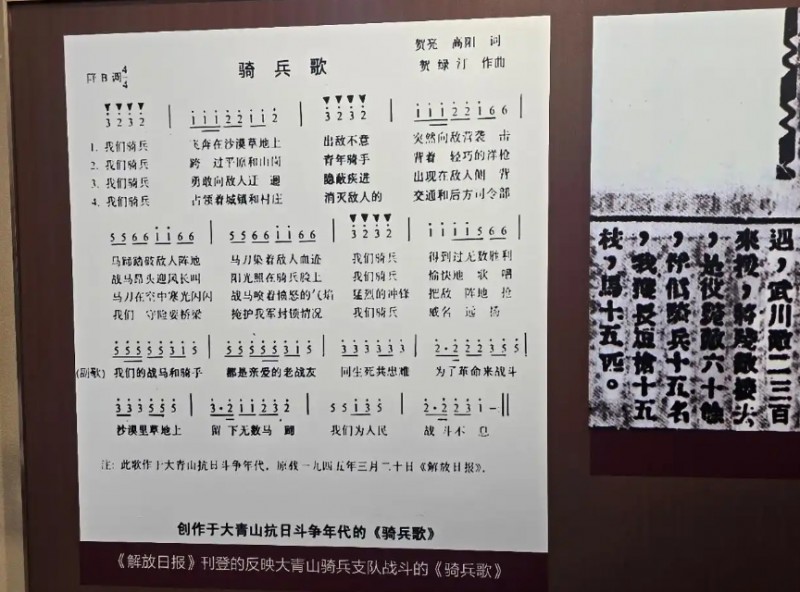 骑兵歌
贺亮 高阳 词
贺绿汀 作曲
B调 4/4
3 2 3 2 | i i i 2 2 i i 2 | 3 2 3 2 | i i i 2 2 i 6 6 |
1. 我们骑兵 飞奔在沙漠草地上 出敌不意 突然向敌营袭击
2. 我们骑兵 跨过平原和山岗 青年骑手 背着轻巧的洋枪
3. 我们骑兵 勇敢向敌人迂迴 隐蔽疾进 出现在敌人侧背
4. 我们骑兵 占领着城镇和村庄 消灭敌人的 交通和后方司令部
5 5 6 6 i i 6 6 | 5 5 6 6 i i 6 6 | 3 2 3 2 | i i i i 5 i i |
马蹄踏破敌人阵地 马刀染着敌人血迹 我们骑兵 得到过无数胜利
战马昂头迎风长叫 阳光照在骑兵脸上 我们骑兵 愉快地歌唱
马刀在空中寒光闪闪 战马喷着愤怒的气焰 猛烈的冲锋 把敌阵地抢
我们守险要桥梁 掩护我军封锁情况 我们骑兵 威名远扬
(副歌) 我们的战马和骑手 都是亲爱的老战友 同生死共患难 为了革命来战斗
沙漠里草地上 留下无数马蹄 我们为人民 战斗不息
注：此歌作于大青山抗日斗争年代，原载一九四五年三月二十日《解放日报》。
创作于大青山抗日斗争年代的《骑兵歌》
《解放日报》刊登的反映大青山骑兵支队战斗的《骑兵歌》
遇，武川敵二三百
來援，騎
，是役斃敵六十餘
，俘僞騎兵十五名
，我獲長短槍十五
枝，馬十五匹。